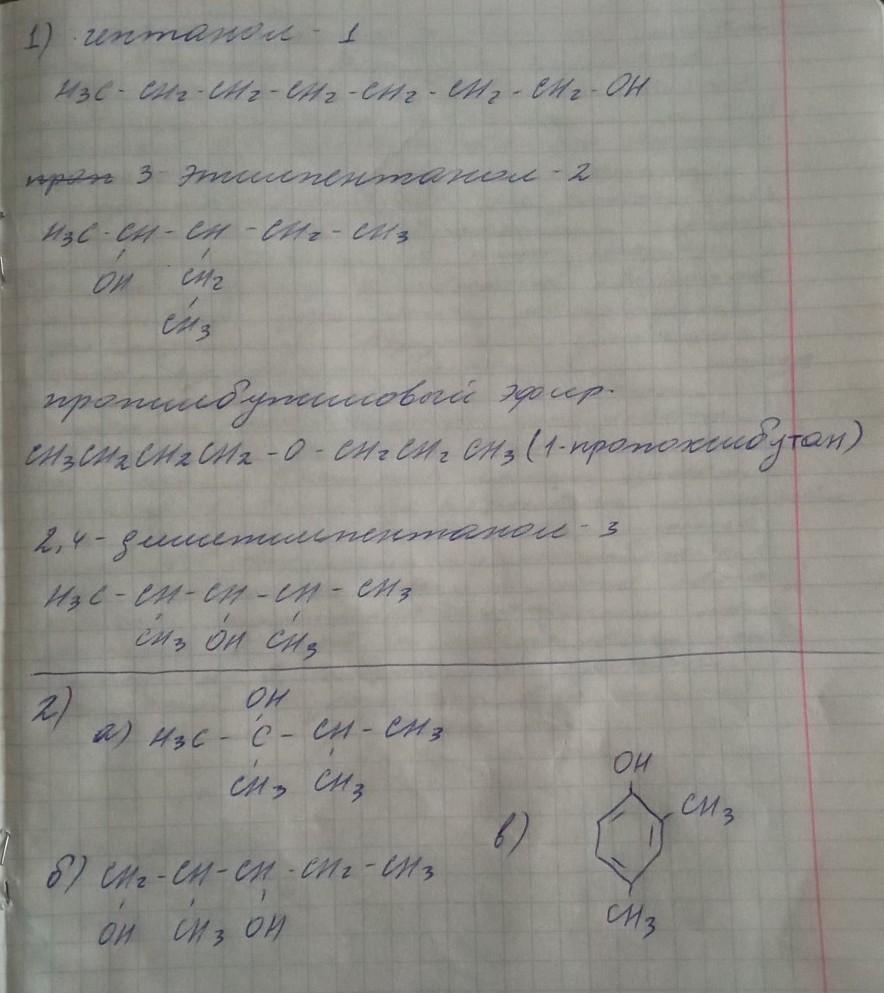 1) гептанол - 1
H₃C - CH₂ - CH₂ - CH₂ - CH₂ - CH₂ - CH₂ - OH
3 этилпентанол - 2
H₃C - CH - CH - CH₂ - CH₃
OH CH₂
CH₃
пропилбутиловый эфир.
CH₃CH₂CH₂CH₂ - O - CH₂CH₂CH₃ (1-пропоксибутан)
2,4 - диметилпентанол - 3
H₃C - CH - CH - CH - CH₃
CH₃ OH CH₃
2)
OH
а) H₃C - C - CH - CH₃
CH₃ CH₃
б) CH₂ - CH - CH - CH₂ - CH₃
OH CH₃ OH
в)
OH
CH₃
CH₃